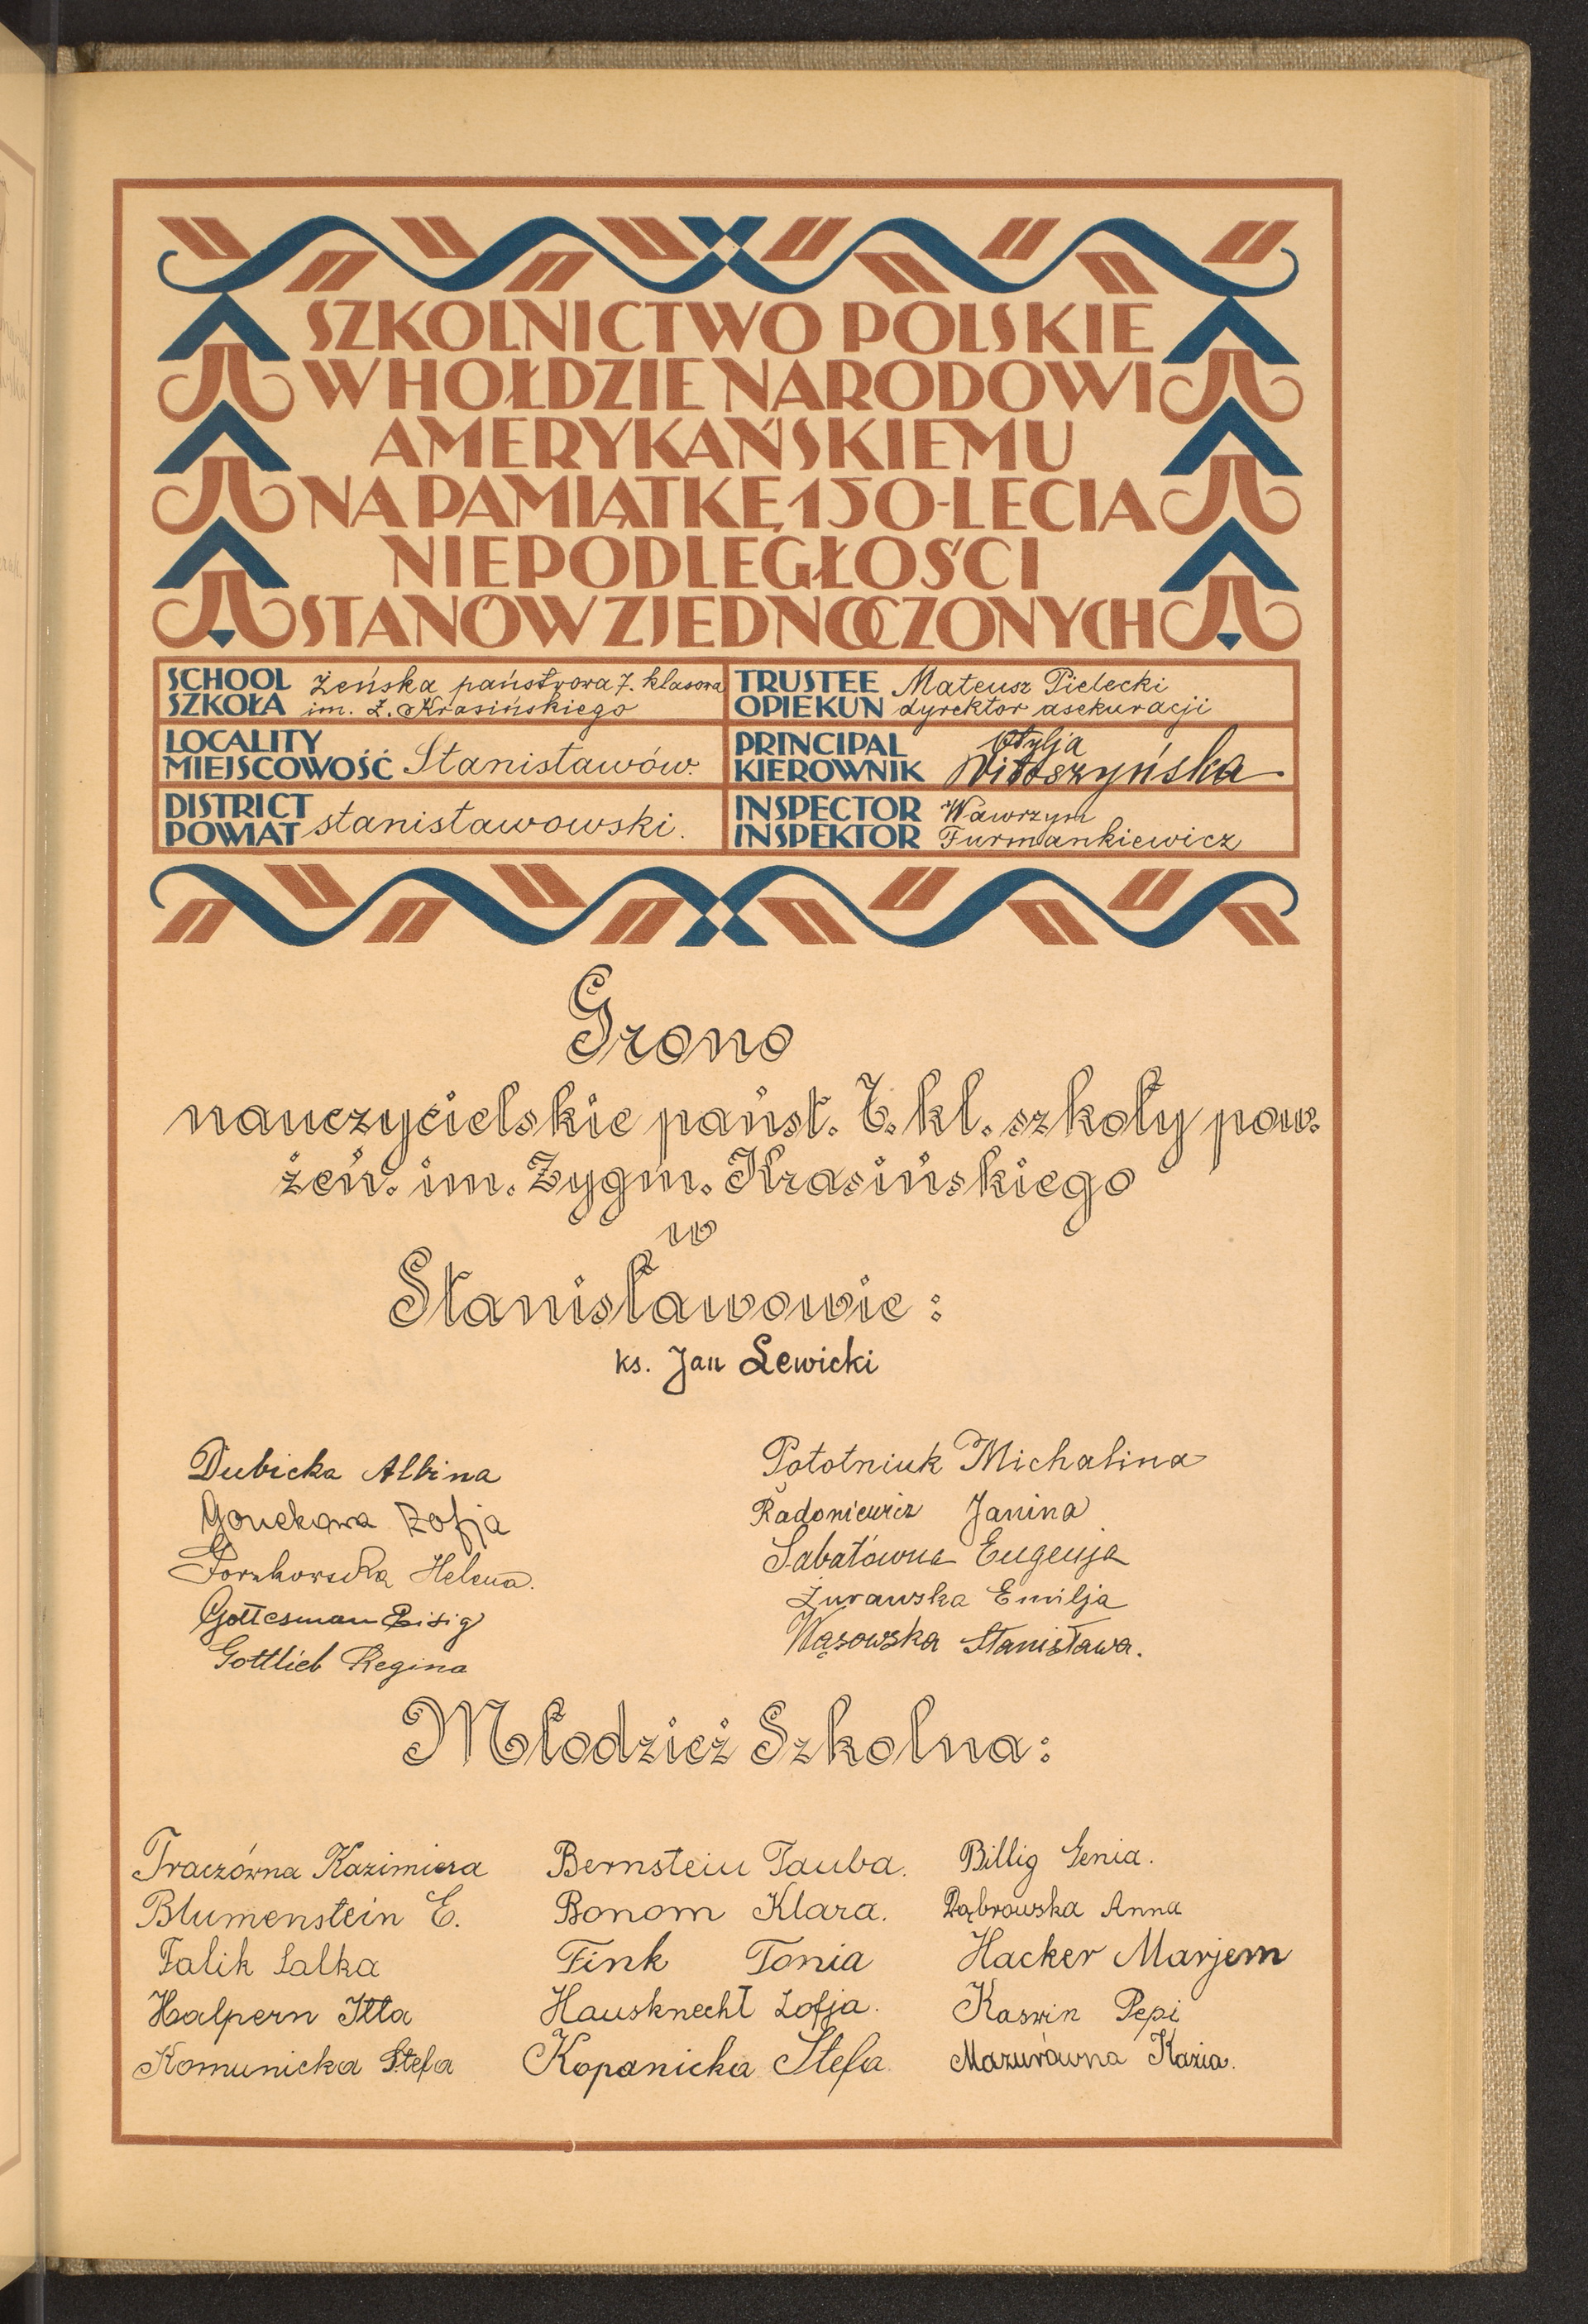 SZKOLNICTWO POLSKIE
W HOŁDZIE NARODOWI
AMERYKAŃSKIEMU
NA PAMIĄTKĘ 150-LECIA
NIEPODLEGŁOŚCI
STANÓW ZJEDNOCZONYCH
SCHOOL
SZKOŁA
żeńska państwowa 7. klasowa
im. Z. Krasińskiego
TRUSTEE
OPIEKUN
Mateusz Pielecki
dyrektor asekuracji
LOCALITY
MIEJSCOWOŚĆ
Stanisławów.
PRINCIPAL
KIEROWNIK
Otylja
Witoszyńska
DISTRICT
POWIAT
stanisławowski.
INSPECTOR
INSPEKTOR
Wawrzyn
Furmankiewicz
Grono
nauczycielskie państ. 7. kl. szkoły pow.
żeń. im. Zygm. Krasińskiego
w
Stanisławowie:
ks. Jan Lewicki
Dubicka Albina
Zofja
Helena.
Gottesman Eisig
Gottlieb Regina
Michalina
Radoniewicz Janina
Sabatówna Eugenja
Żurawska Emilja
Wąsowska Stanisława.
Młodzież Szkolna:
Traczówna Kazimiera
Blumenstein E.
Falik Salka
Halpern Itta
Komunicka Stefa
Bernstein Tauba.
Bonom Klara.
Fink Tonia
Hausknecht Zofja.
Kopanicka Stefa
Billig Genia.
Dąbrowska Anna
Hacker Marjem
Kaswin Pepi
Mazurówna Kazia.